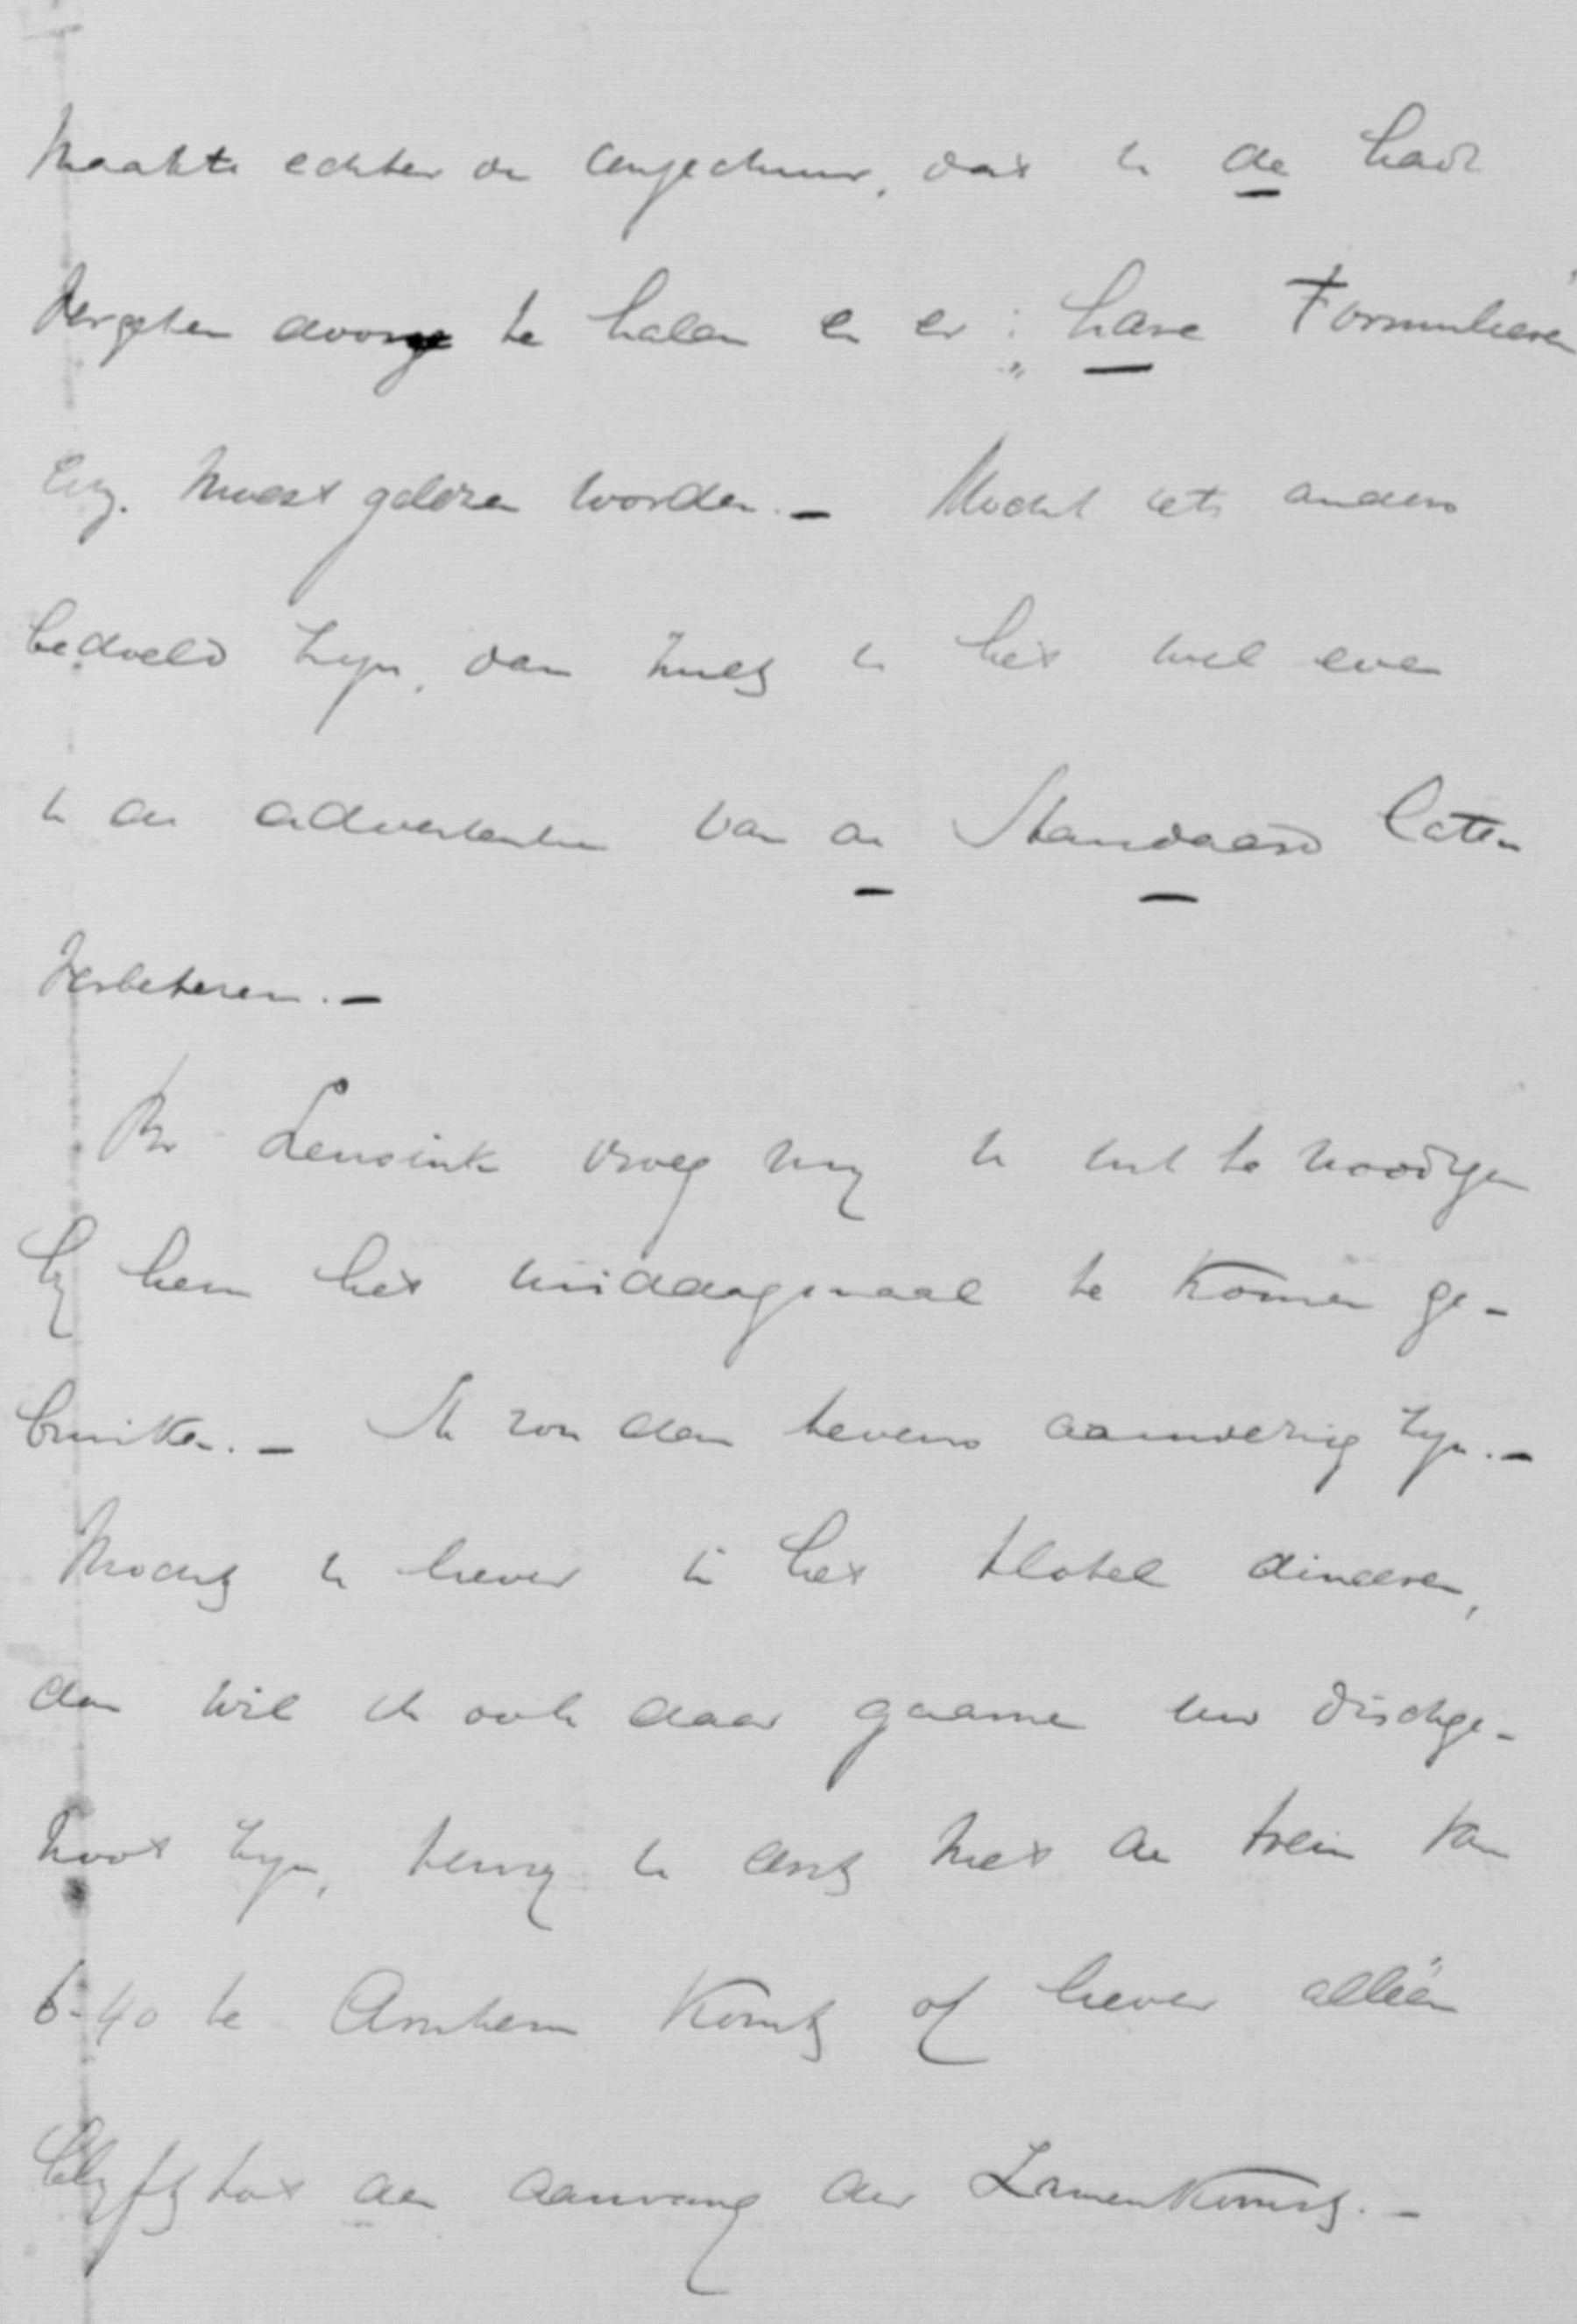 maakte echter de conjectuur, dat u de hadt
vergeten door te halen en er: „hare Formulieren
Enz. moest gelezen worden. — Mocht iets anders
bedoeld zijn, dan zult u het wel even
in de advertentie van de Standaard laten
verbeteren. —
Br Lensink vroeg mij u uit te noodigen
bij hem het middagmaal te komen ge-
bruiken. — Ik zou dan tevens aanwezig zijn. —
Mocht u liever in het Hotel dineeren,
dan wil ik ook daar gaarne uw dischge-
noot zijn, tenzij u eerst met de trein van
6-40 te Arnhem komt of liever alléén
blijft tot den aanvang der Zamenkomst. —